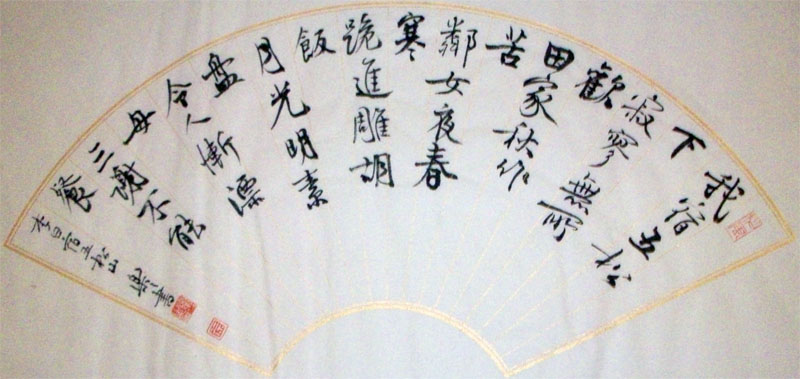 我宿五松
下
寂寥無所
歡
田家秋作
苦
鄰女夜舂
寒
跪進雕胡
飯
月光明素
盤
令人慚漂
母
三謝不能
餐
李白宿五松山 書